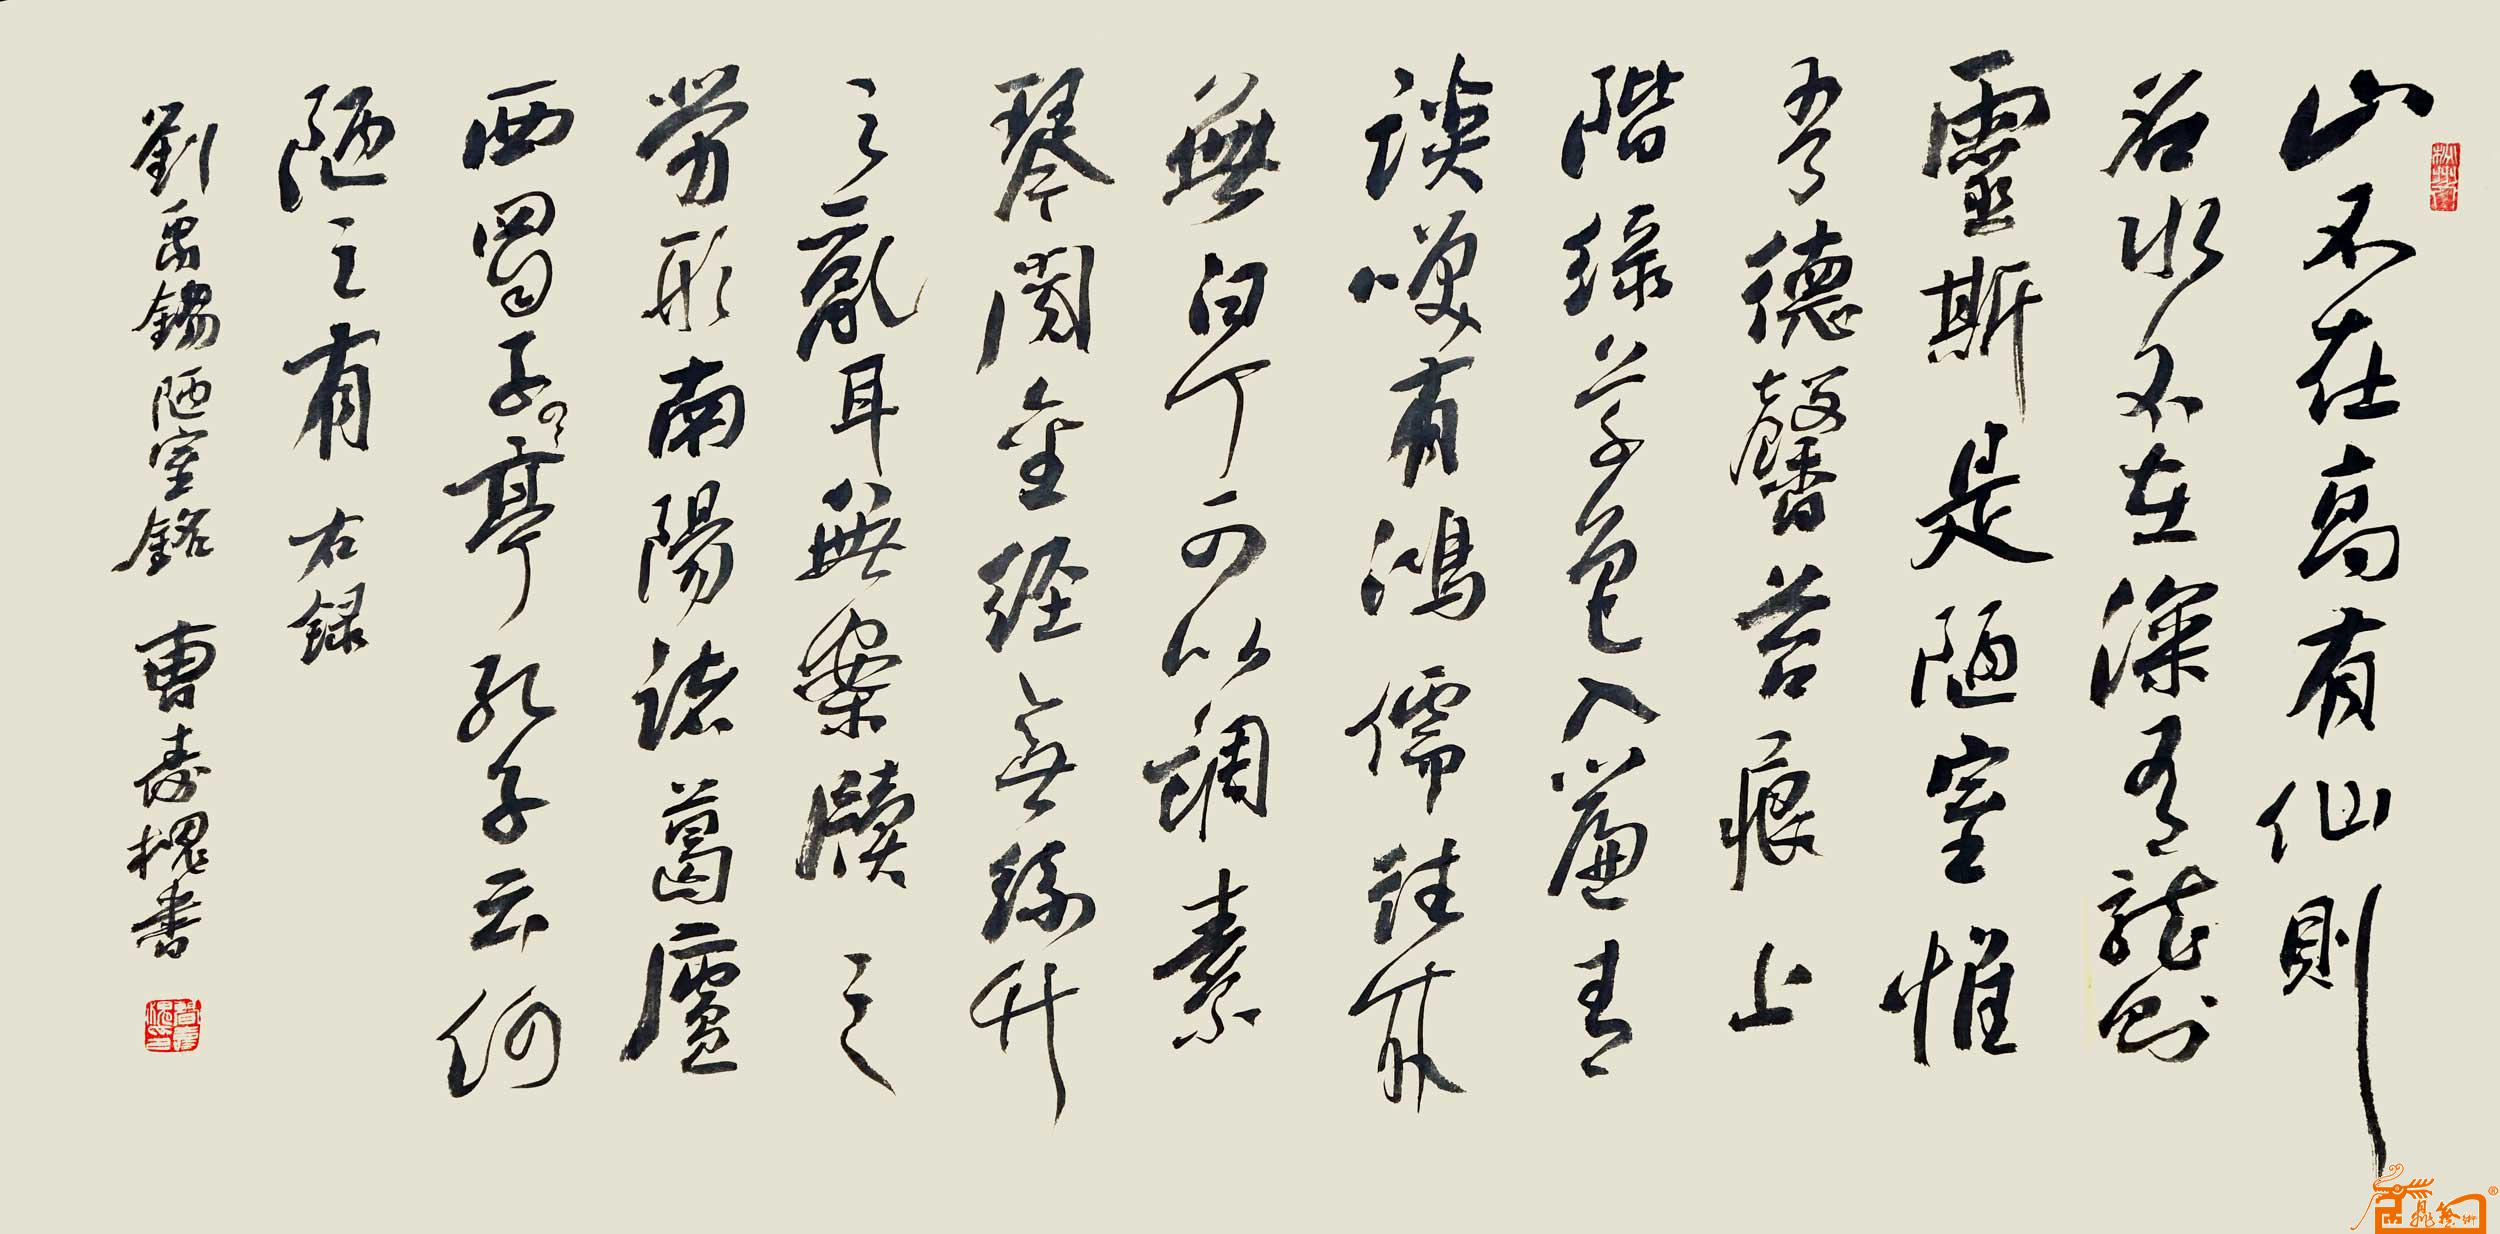 山不在高有仙則
名水不在深有龍則
靈斯是陋室惟
吾德馨苔痕上
階綠草色入簾青
談笑有鴻儒往來
無白丁可以調素
琴閱金經無絲竹
之亂耳無案牘之
勞形南陽諸葛廬
西蜀子云亭孔子云何
陋之有 右録
劉禹錫陋室銘 曹寿槐書